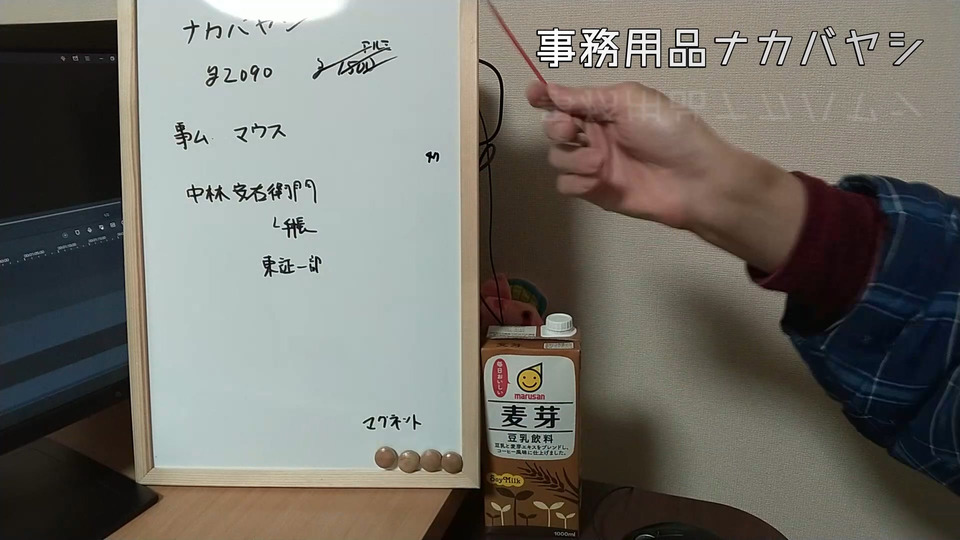 事務用品ナカバヤシ
ナカバヤシ
¥2090
事ム マウス
中林安右衛門
東証一部
マグネット
毎日おいしい
marusan
麦芽
豆乳飲料
豆乳と麦芽エキスをブレンドし、
コーヒー風味に仕上げました。
SoyMilk
1000ml